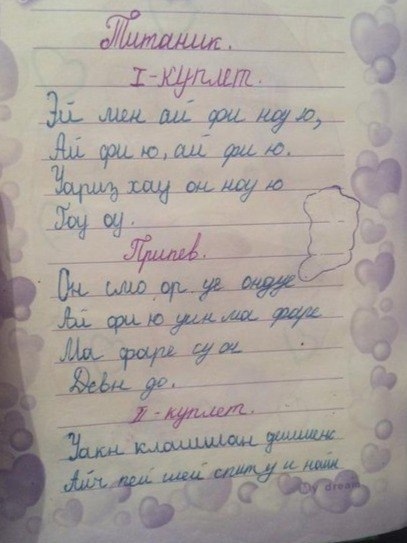 Титаник.
I-куплет.
Эй мен ай фи ноу ю,
Ай фи ю, ай фи ю.
Уариз хау он ноу ю
Гоу оу.
Припев.
Он смо ор уе ондуе
Ай фи ю уин ма фаре
Ма фаре су он
Девн до.
II-куплет.
Уакн клашшан дешшенс
Айч пей шей спит у и найн
My dream